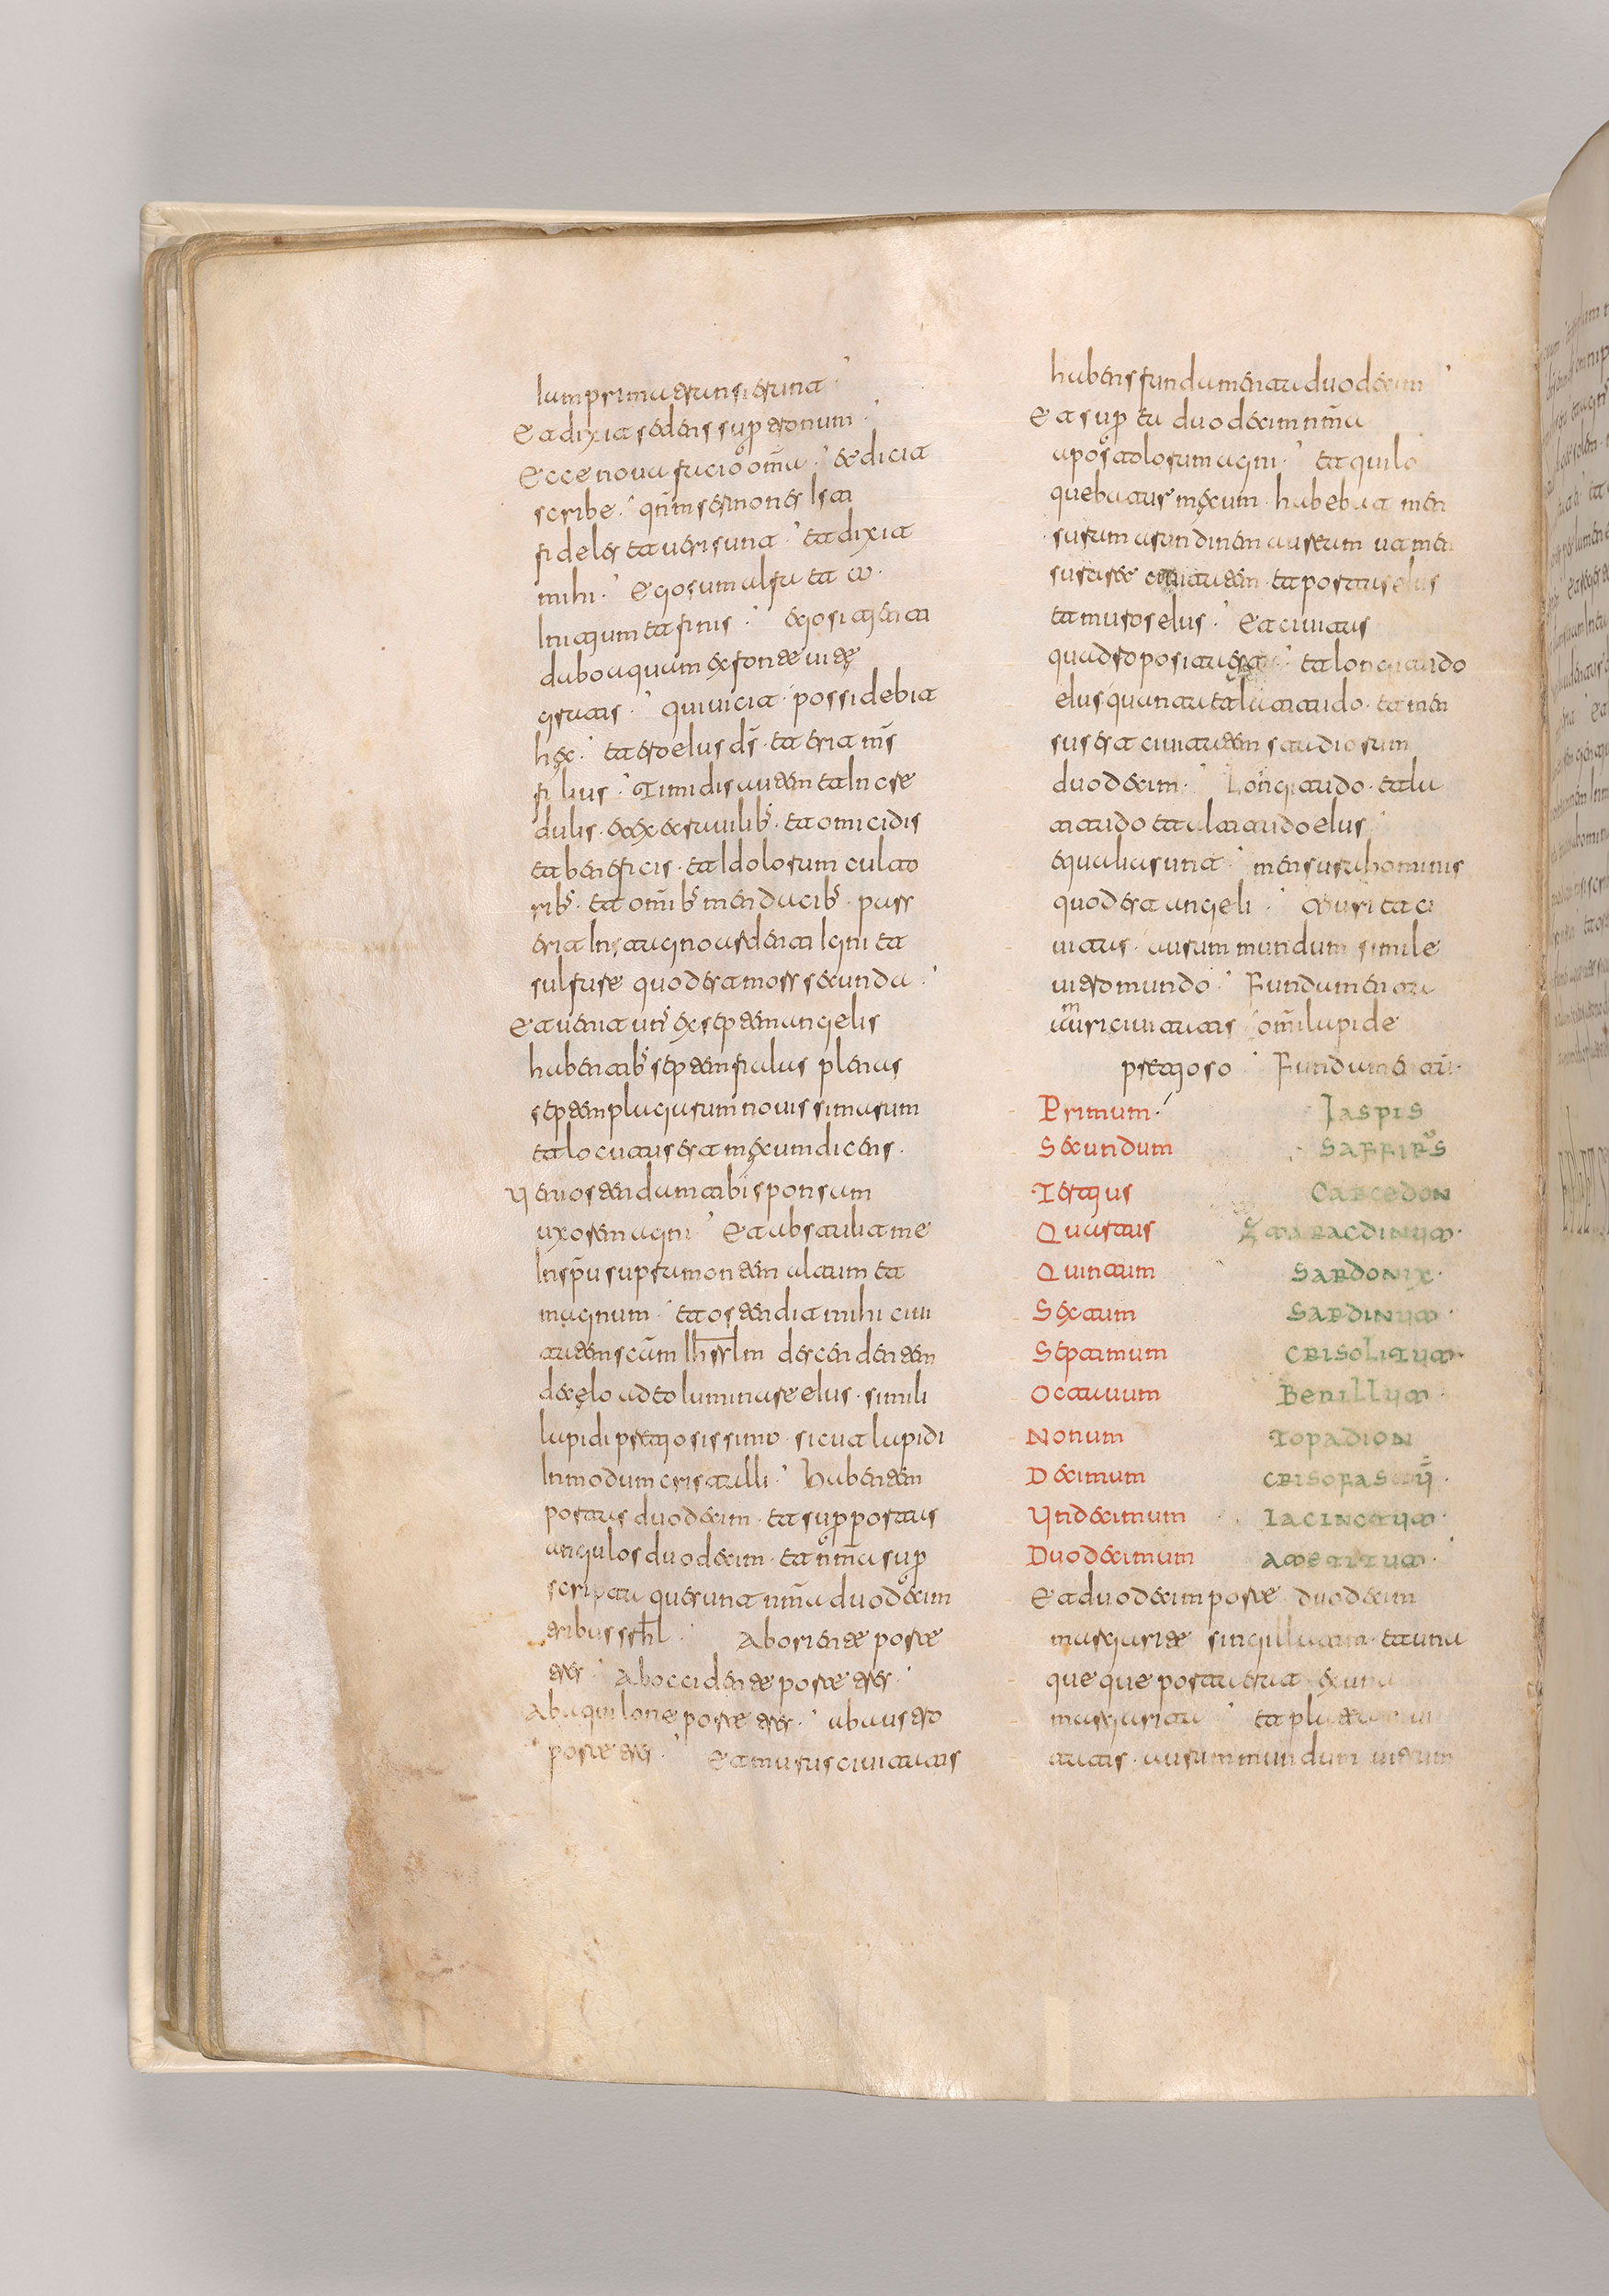 iam prima transierunt ·
Et dixit sedens sup tronum ·
Ecce noua facio om̄a · et dicit
scribe · qnm̄ sermones isti
fideles et ueri sunt · et dixit
mihi · Ego sum alfa et ω ·
Initium et finis · ego sitienti
dabo aquam ex fonte uite
gratis · qui uicit · possidebit
hęc · et ero eius ds̄ · et erit ms̄
filius · Timidis autem et incre
dulis · et execrauilib · et omicidis
et beneficis · et idolorum culto
rib · et om̄ib mendacib · pars
erit in stagno ardenti igni et
sulfure quod est mors secunda ·
Et uenit un ex septem angelis
habentib septem fialas plenas
septem plagarum nouissimarum
et locutus est mecum dicens ·
Ueni ostendam tibi sponsam
uxorem agni · Et abstulit me
in sp̄u supra montem altum et
magnum · et ostendit mihi ciui
tatem sc̄am Ihrslm descendentem
de cęlo a do luminare eius · simili
lapidi pretiosissimo · sicut lapidi
in modum cristalli · Habentem
portas duodecim · et sup portas
angulos duodecim · et nm̄a sup
scripta que sunt nm̄a duodecim
tribus srhl · Ab oriente porte
tres · Ab occidente porte tres ·
Ab aquilone porte tres · ab austro
porte tres · Et murus ciuitatis
habens fundamenta duodecim
Et sup ea duodecim nm̄a
apostolorum agni · et qui lo
quebatur mecum · habebat men
suram arundineam auream ut men
suraret ciuitatem · et portas eius
et muros eius · Et ciuitas
quadro posita est · et longitudo
eius quanta et latitudo · et men
sus est ciuitatem stadiorum
duodecim · Longitudo · et la
titudo et altitudo eius
equalia sunt · mensura hominis
quod est angeli · muri et ci
uitas · aurum mundum simile
uitro mundo · Fundamenta
muri ciuitatis omi lapide
pretioso · Fundamenti ·
Primum · Iaspis
Secundum Saffiros
Tertius Carcedon
Quartus Zmaracdinum ·
Quintum Sardonix ·
Sextum Sardinum ·
Septimum Crisolitum ·
Octauum Berillum ·
Nonum Topadion
Decimum
Undecimum Iacinctum ·
Duodecimum Ametitum ·
Et duodecim porte duodecim
margarite singillatim · et una
queque porta erat ex una
margarita et platee ciui
tatis · aurum mundum uitrum